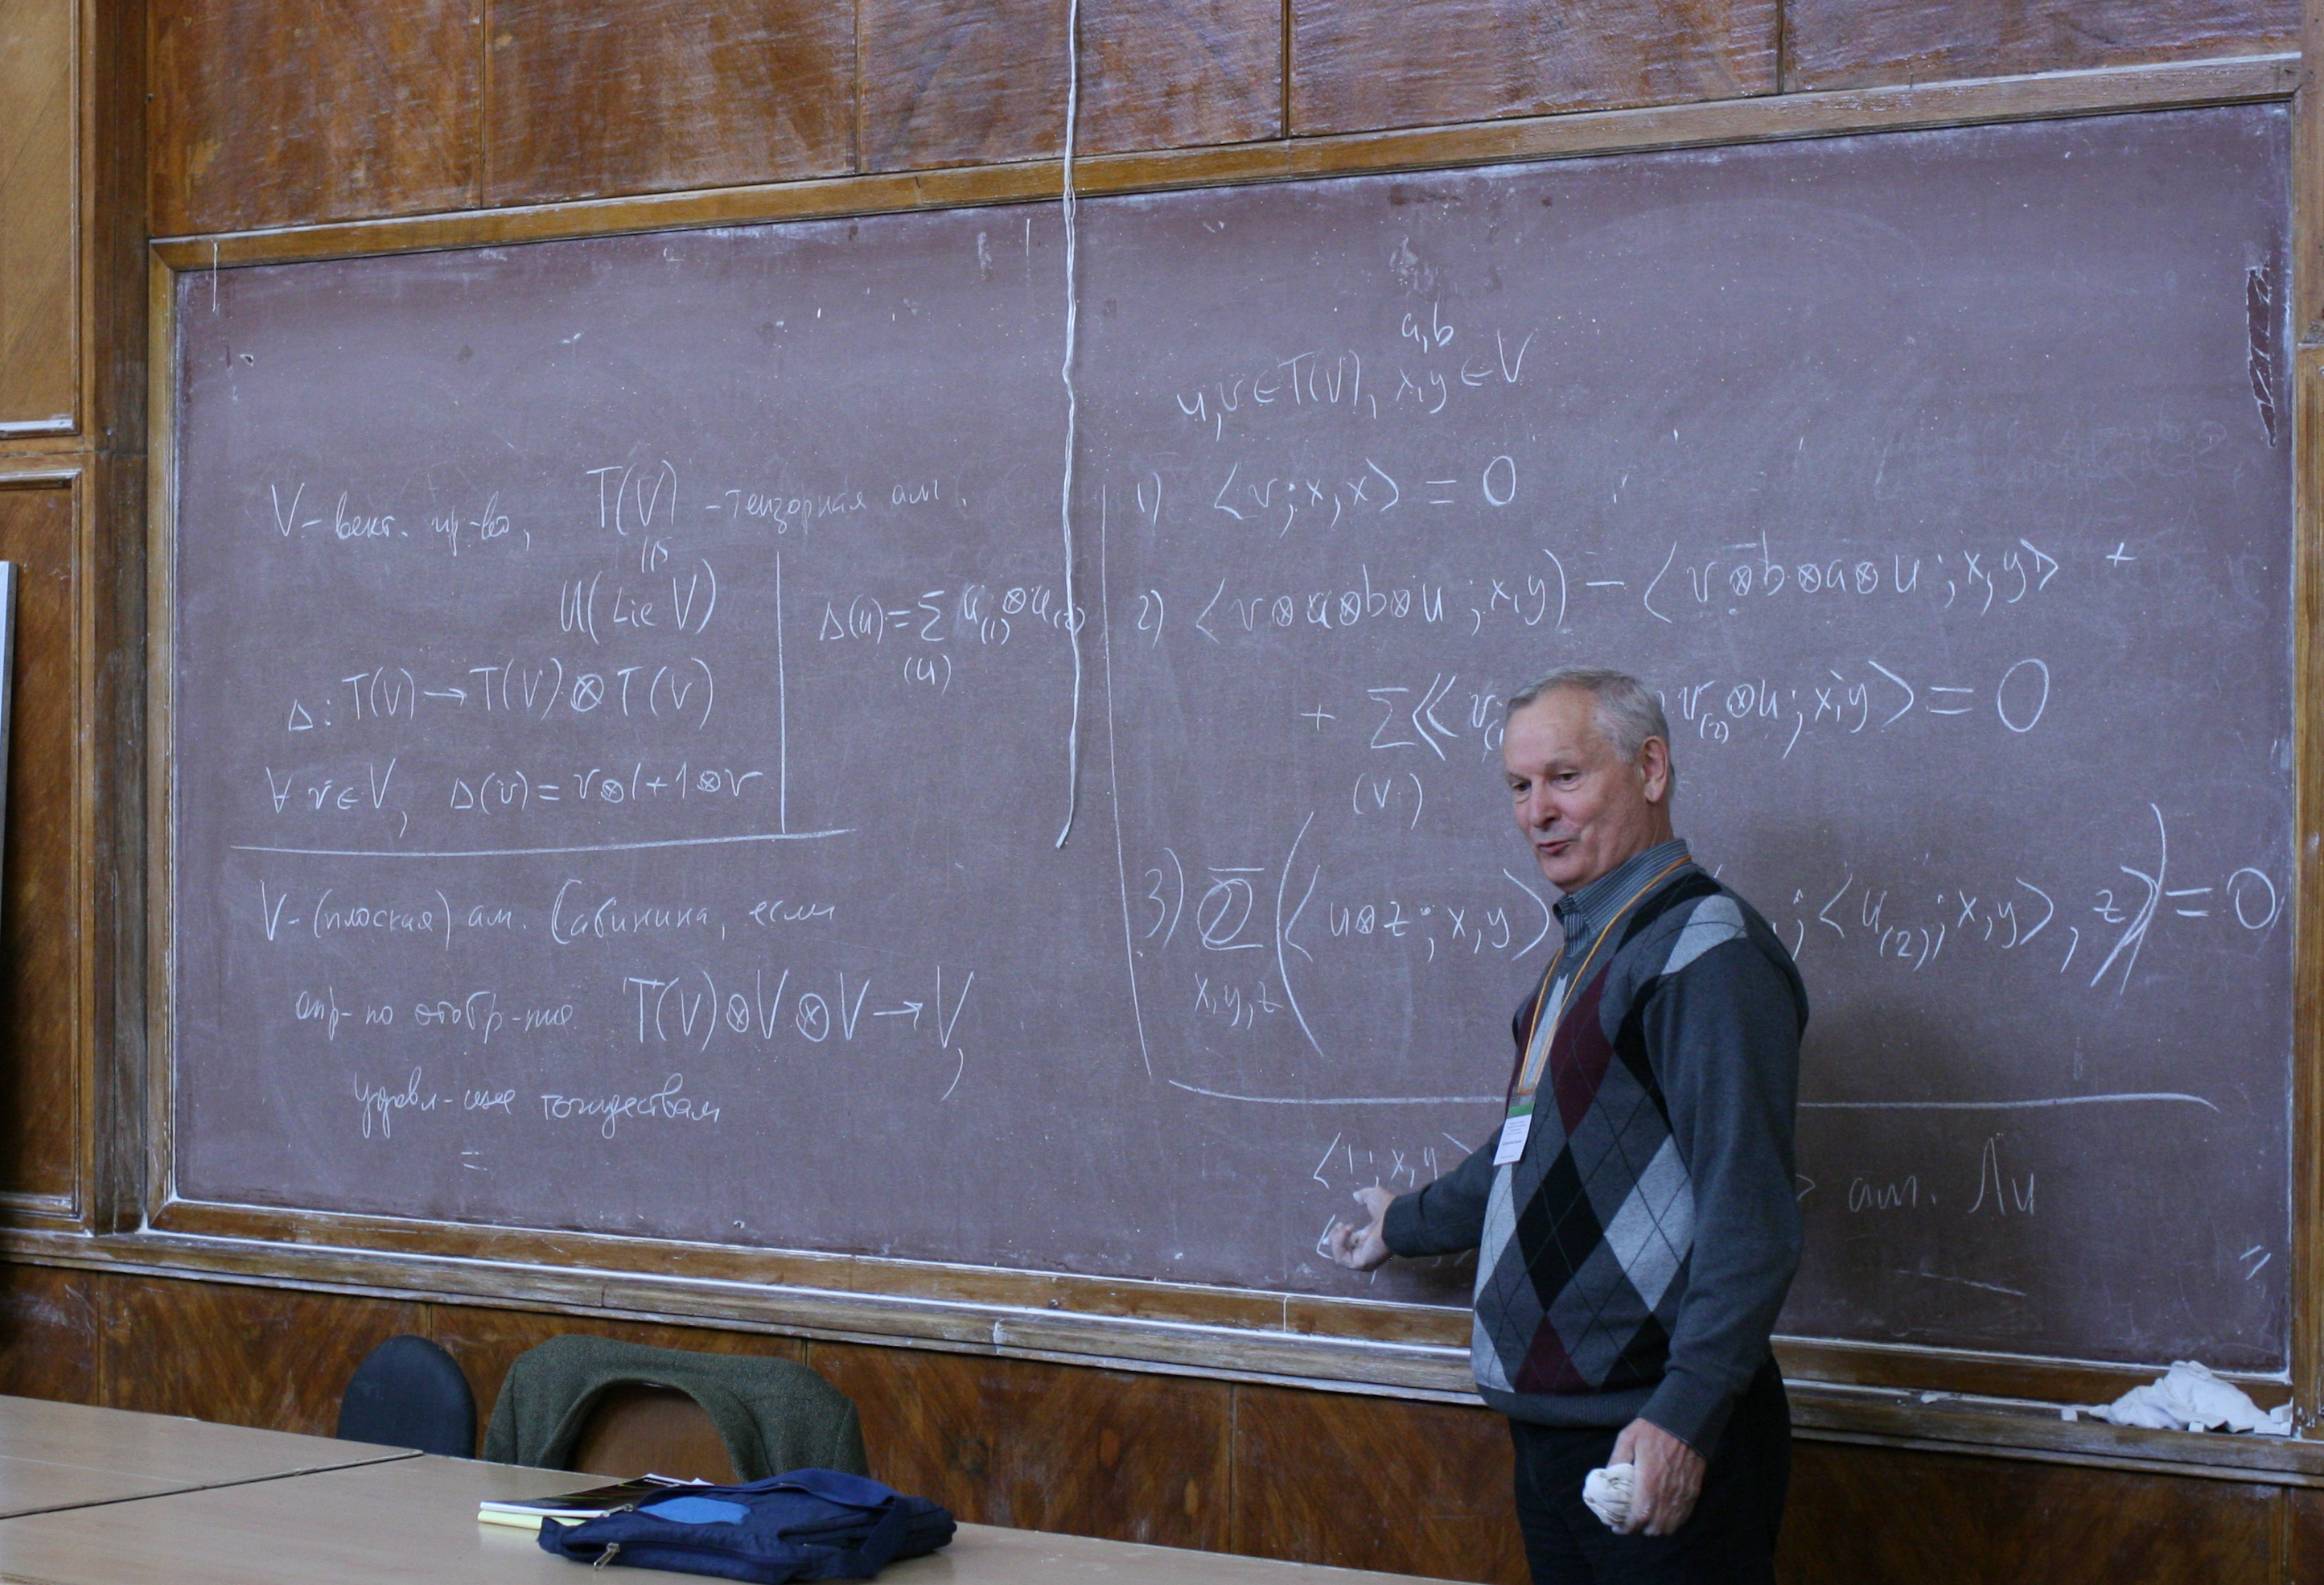 V - вект. пр-во, T(V) - тензорная алг.
U(Lie V)
Δ: T(V) → T(V) ⊗ T(V)
∀ v ∈ V, Δ(v) = v⊗1 + 1⊗v
Δ(u) = Σ u₍₁₎ ⊗ u₍₂₎
(u)
V - (плоская) алг. Сабинина, если
опр-но отобр-ние T(V) ⊗ V ⊗ V → V,
удовл-щее тождествам
a, b
u, v ∈ T(V), x, y ∈ V
1) ⟨v; x, x⟩ = 0
2) ⟨v⊗a⊗b⊗u; x, y⟩ - ⟨v⊗b⊗a⊗u; x, y⟩ +
+ Σ⟨⟨v v₍₂₎⊗u; x, y⟩ = 0
(v)
3) Σ (⟨u⊗z; x, y⟩ ; ⟨u₍₂₎; x, y⟩, z⟩) = 0
x, y, z
⟨1; x, y⟩ алг. Ли